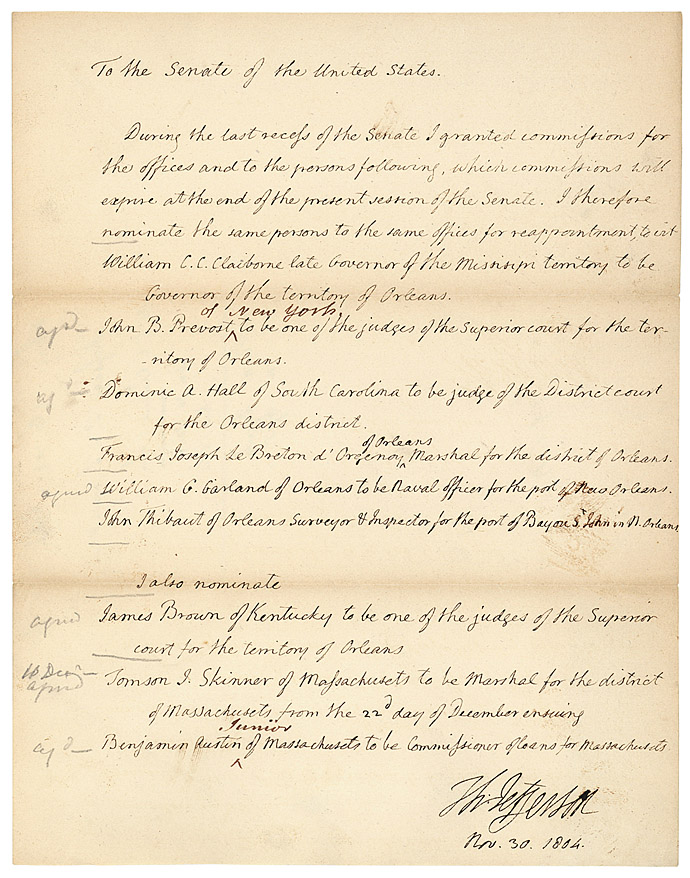 To the Senate of the United States.
During the last recess of the Senate I granted commissions for
the offices and to the persons following, which commissions will
expire at the end of the present session of the Senate. I therefore
nominate the same persons to the same offices for reappointment, to wit
William C. C. Claiborne late Governor of the Missisipi territory to be
Governor of the territory of Orleans.
of New York,
John B. Prevost to be one of the judges of the Superior court for the ter-
-ritory of Orleans.
Dominic A. Hall of South Carolina to be judge of the District court
for the Orleans district.
of Orleans
Francis Joseph Le Breton d'Orgenoy Marshal for the district of Orleans.
agreed William G. Garland of Orleans to be Naval officer for the port of New Orleans.
John Thibaut of Orleans Surveyor & Inspector for the port of Bayou St. John in N. Orleans
I also nominate
agreed James Brown of Kentucky to be one of the judges of the Superior
court for the territory of Orleans
10 Decr
agreed Tomson J. Skinner of Massachusets to be Marshal for the district
of Massachusets from the 22d day of December ensuing
Junior
Benjamin Austin of Massachusets to be Commissioner of loans for Massachusets
Th: Jefferson
Nov. 30. 1804.